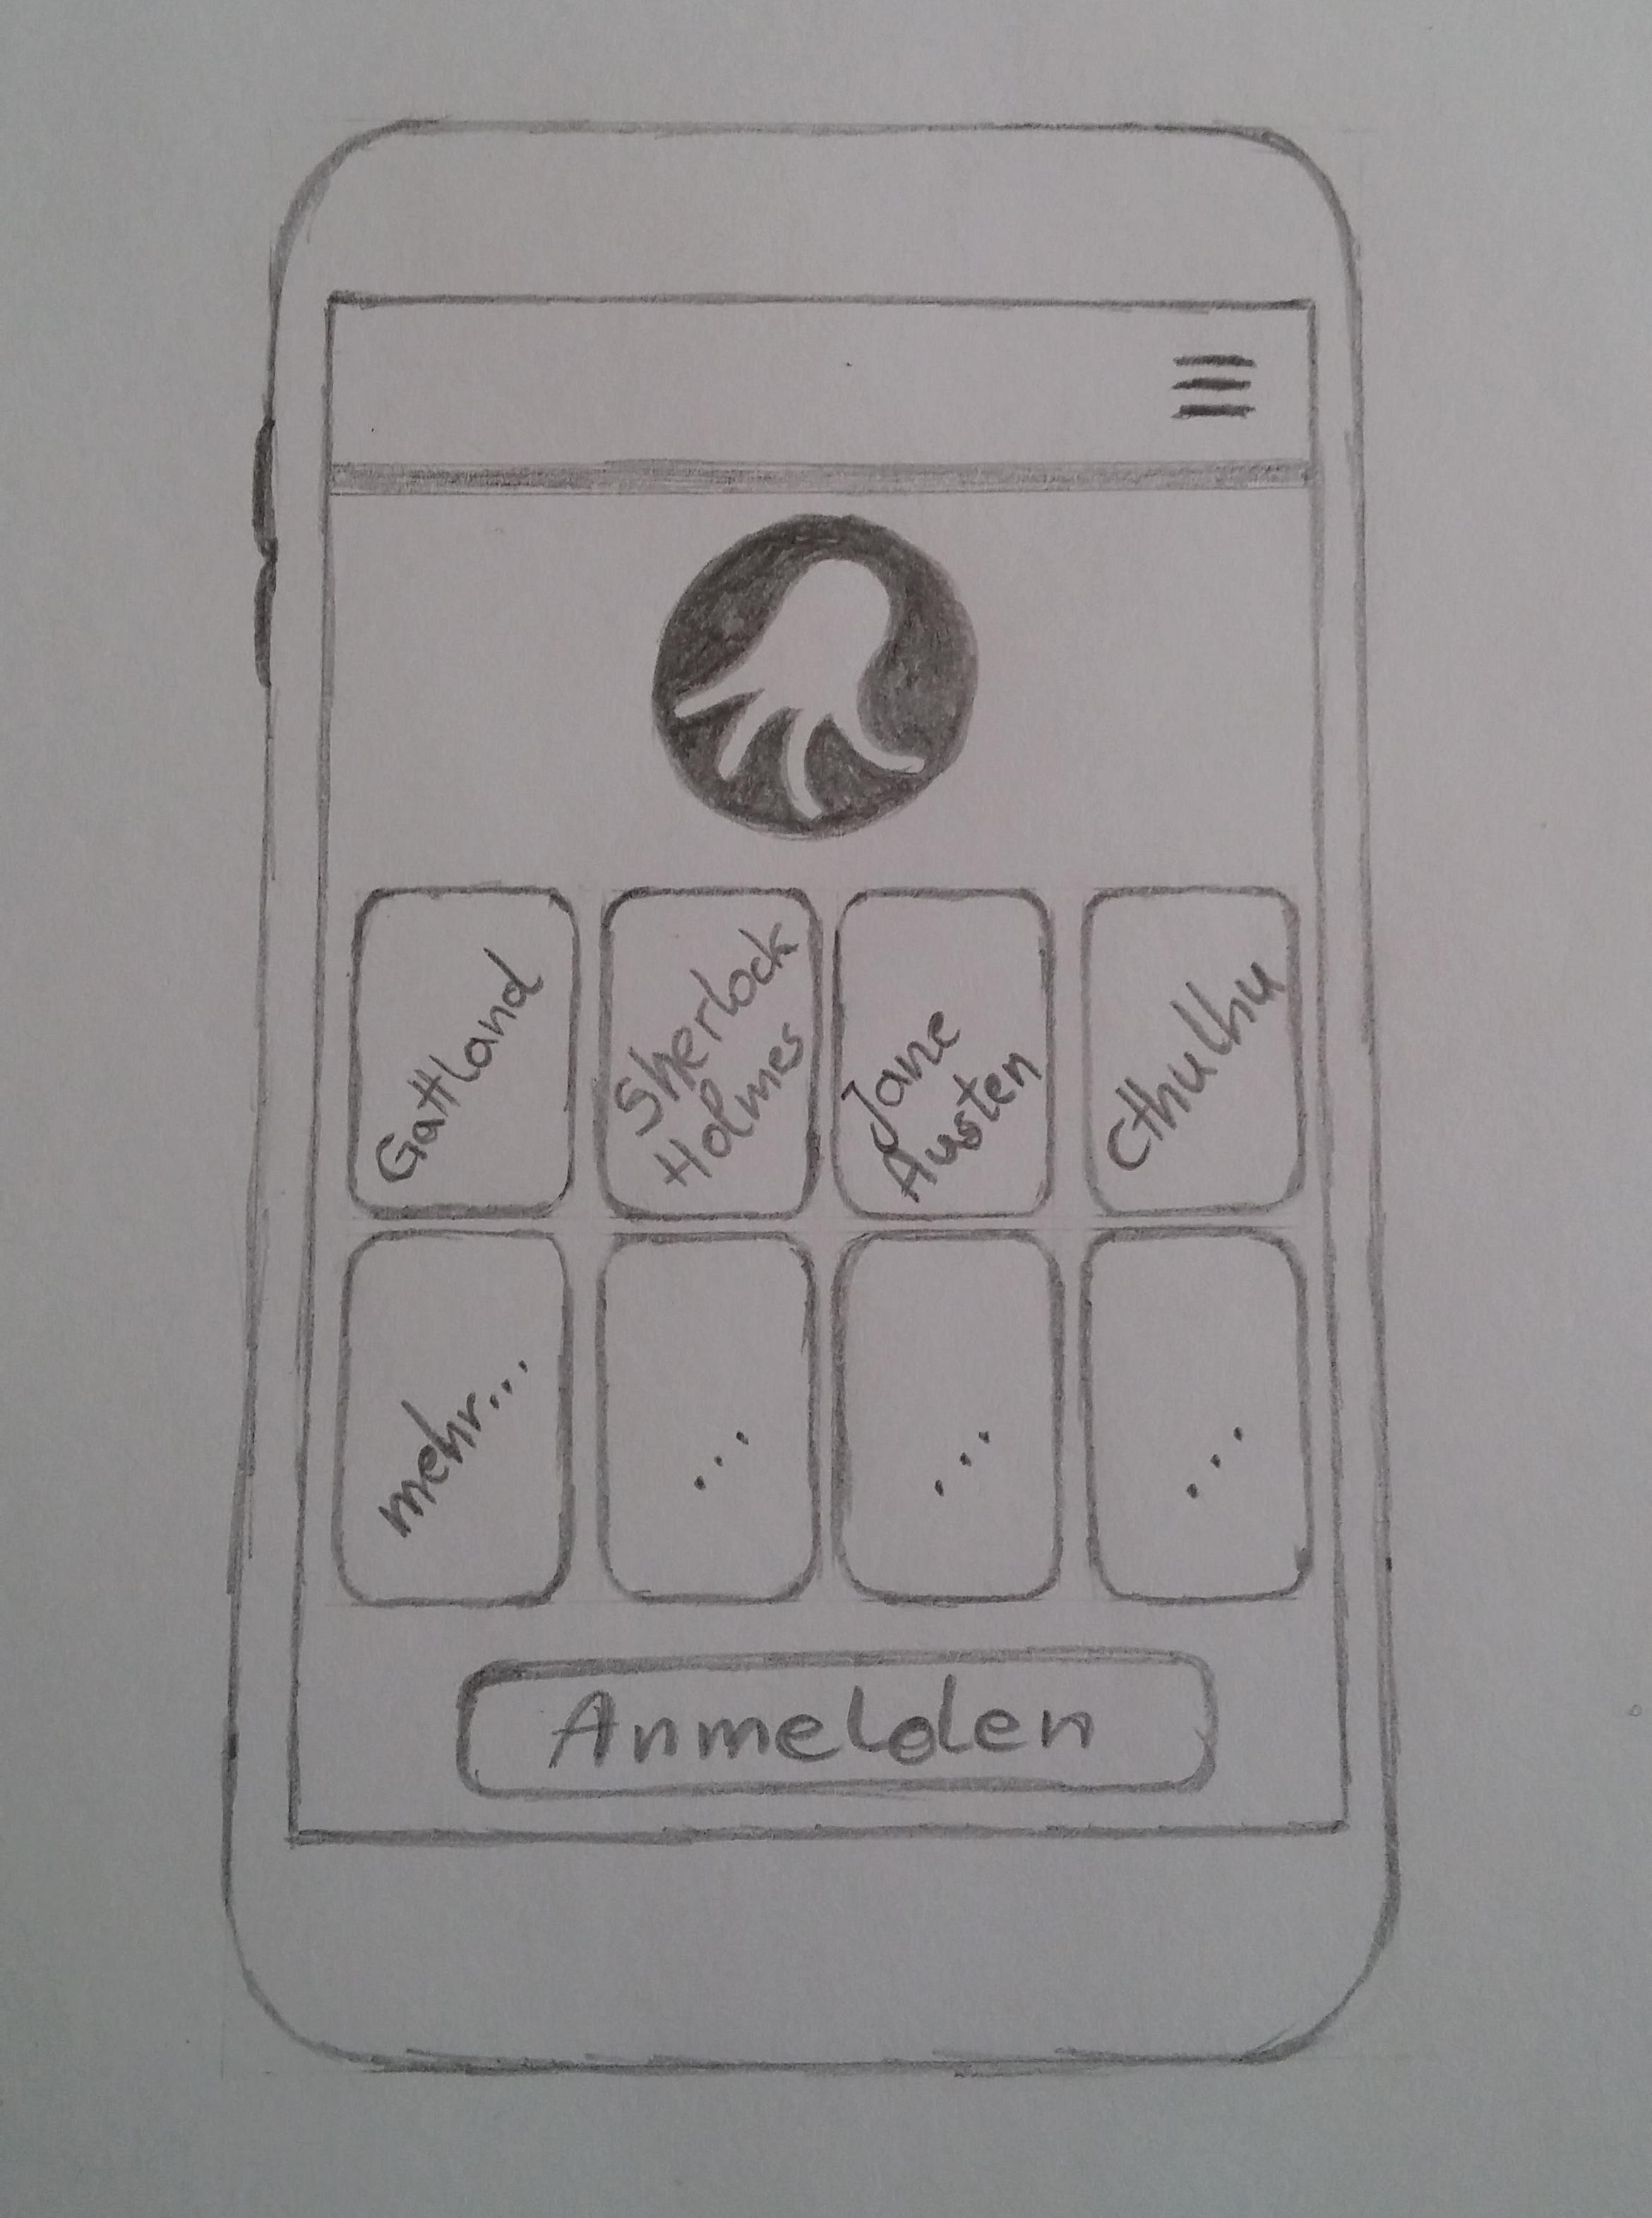 Gattland
Sherlock
Holmes
Jane
Austen
Cthulhu
mehr...
...
...
...
Anmelden